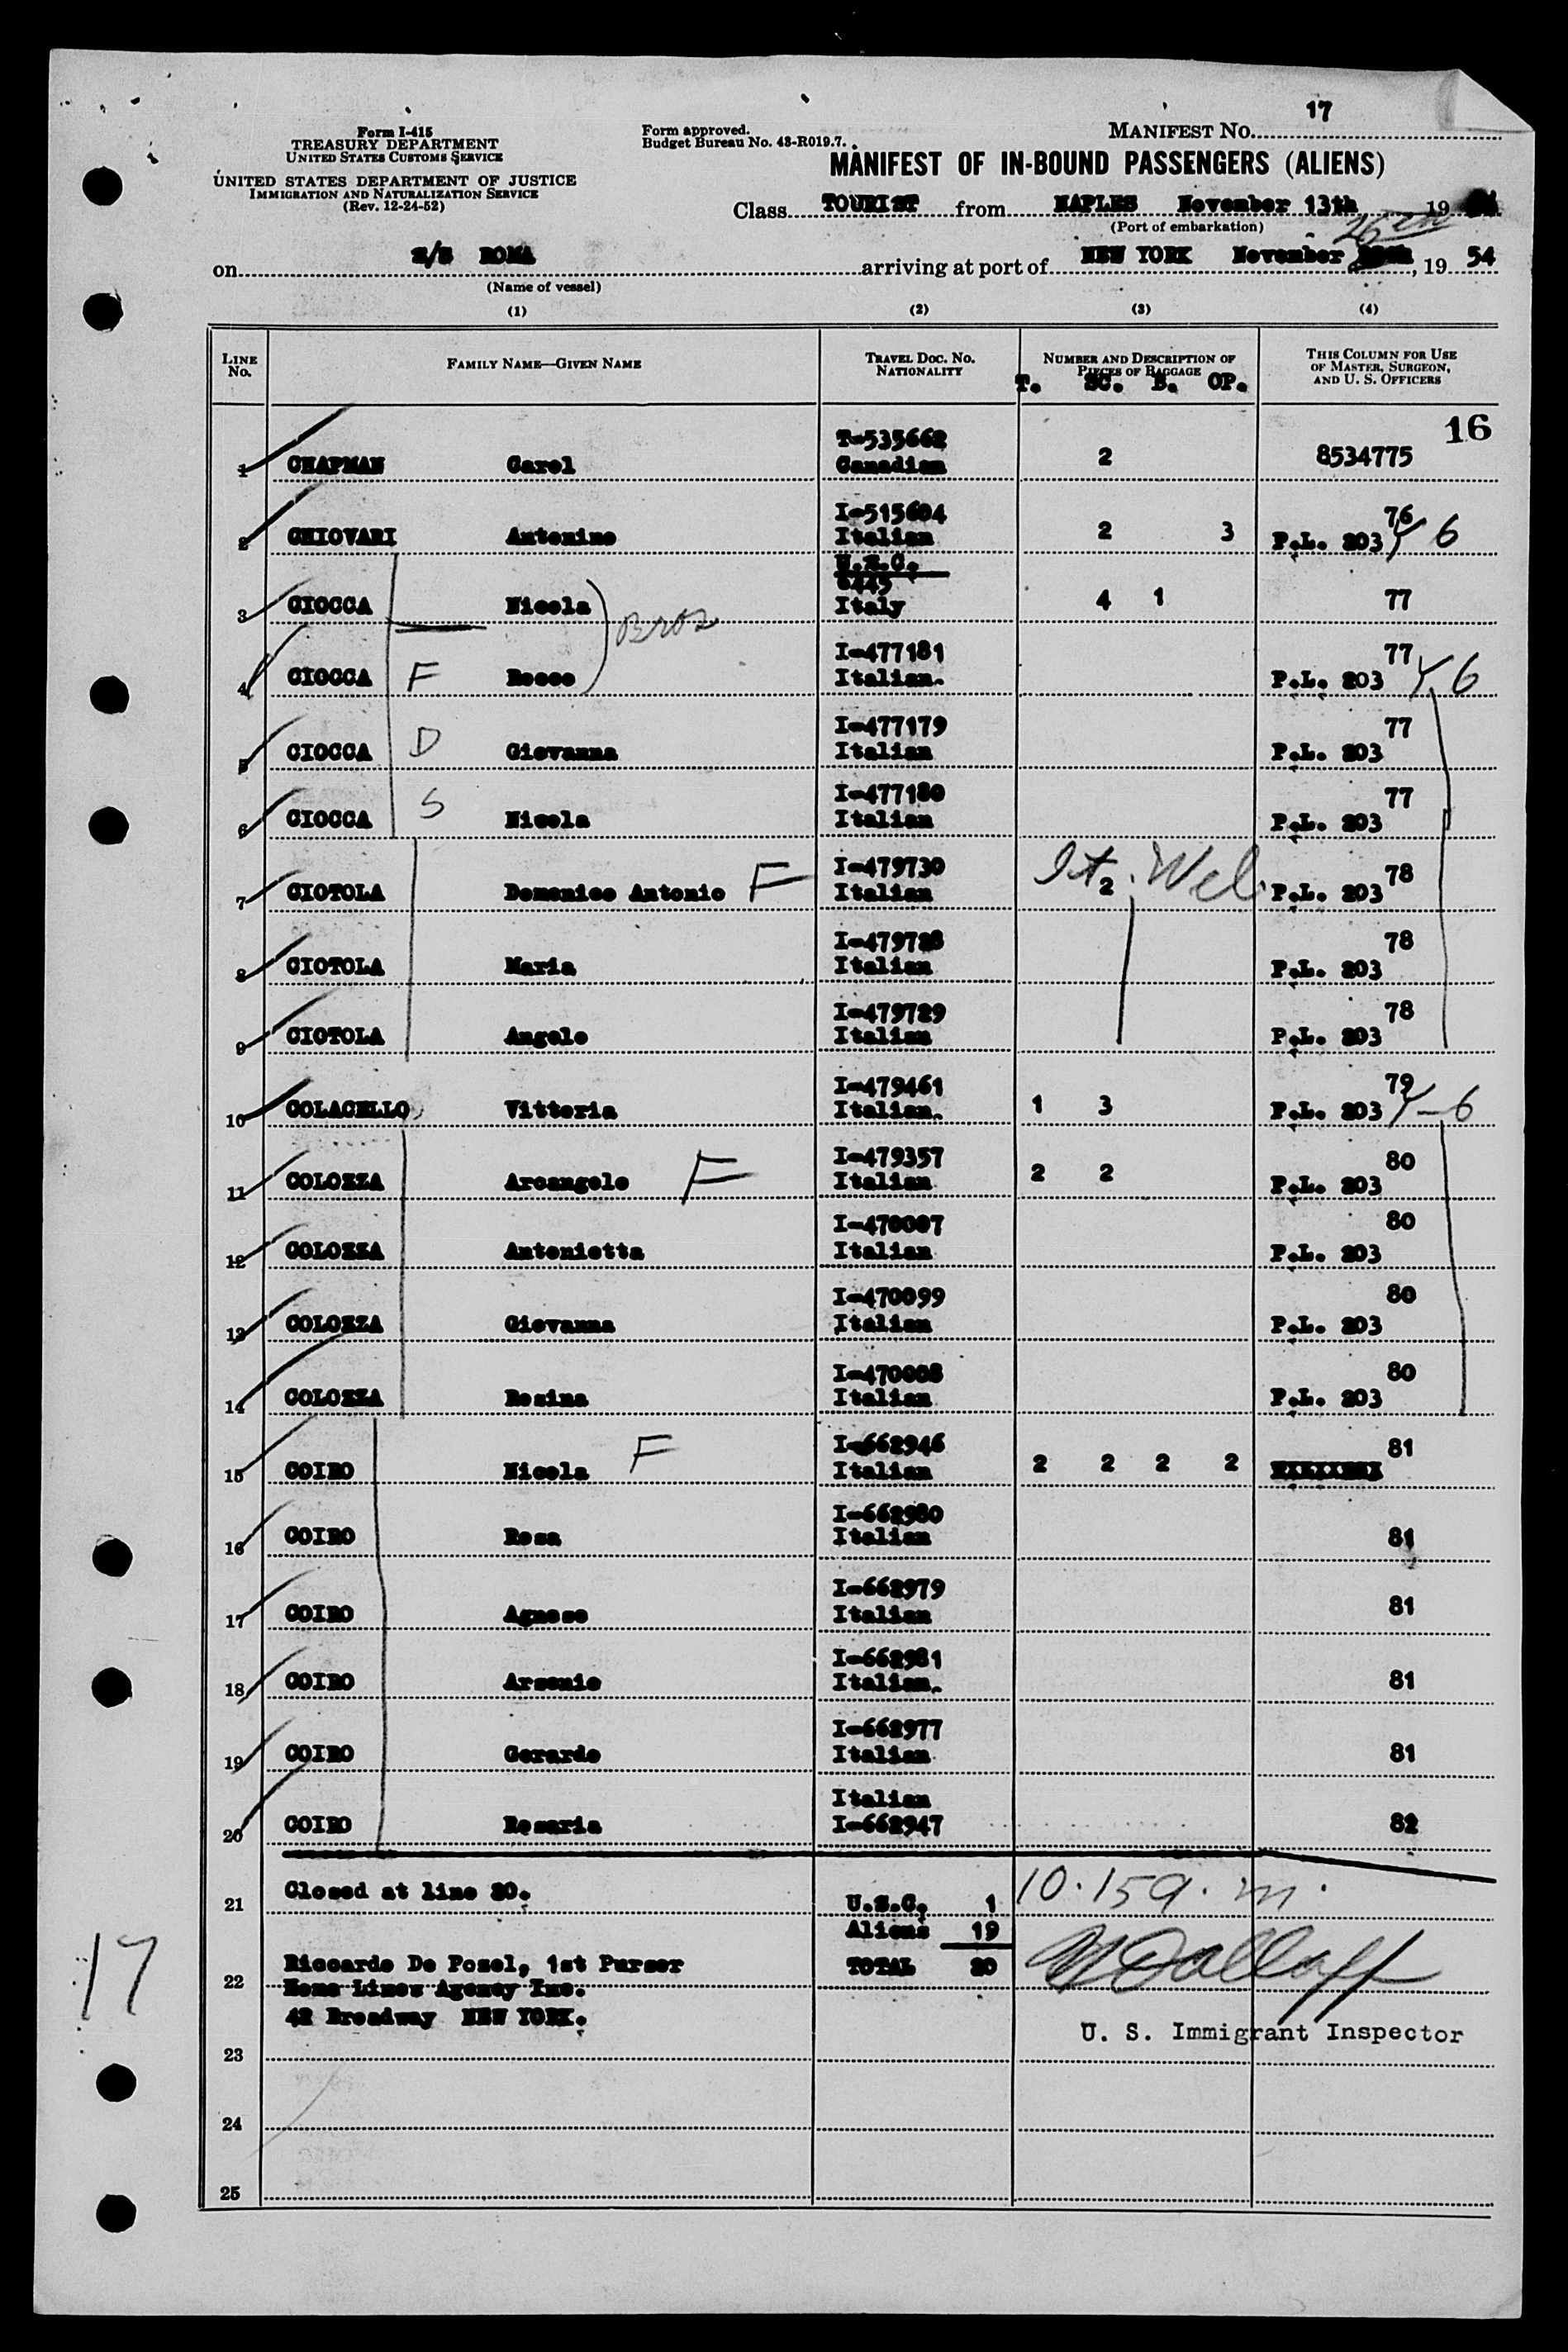 17
Form I-415
TREASURY DEPARTMENT
UNITED STATES CUSTOMS SERVICE
UNITED STATES DEPARTMENT OF JUSTICE
IMMIGRATION AND NATURALIZATION SERVICE
(Rev. 12-24-52)
Form approved.
Budget Bureau No. 43-R019.7.
MANIFEST NO.
MANIFEST OF IN-BOUND PASSENGERS (ALIENS)
Class TOURIST from NAPLES November 13th 19
(Port of embarkation)
26th
on S/S ROMA arriving at port of NEW YORK November , 19 54
(Name of vessel)
(1) (2) (3) (4)
LINE No. FAMILY NAME—GIVEN NAME TRAVEL DOC. NO. NATIONALITY NUMBER AND DESCRIPTION OF PIECES OF BAGGAGE THIS COLUMN FOR USE OF MASTER, SURGEON, AND U. S. OFFICERS
T. SC. B. OP.
16
T-535662
1 CHAPMAN Carol Canadian 2 8534775
I-515604 76
2 CHIOVARI Antonino Italian 2 3 P.L. 203 Y 6
U.S.C.
8445
3 CIOCCA Nicola Italy 4 1 77
Bros
I-477181 77
4 CIOCCA F Rocco Italian. P.L. 203 Y 6
I-477179 77
5 CIOCCA D Giovanna Italian P.L. 203
I-477180 77
6 CIOCCA S Nicola Italian P.L. 203
I-479730 78
7 CIOTOLA Domenico Antonio F Italian It. Wel 2 P.L. 203
I-479728 78
8 CIOTOLA Maria Italian P.L. 203
I-479729 78
9 CIOTOLA Angelo Italian P.L. 203
I-479461 79
10 COLACELLO Vittoria Italian. 1 3 P.L. 203 Y-6
I-479357 80
11 COLOZZA Arcangelo F Italian 2 2 P.L. 203
I-470007 80
12 COLOZZA Antonietta Italian P.L. 203
I-470099 80
13 COLOZZA Giovanna Italian P.L. 203
I-470008 80
14 COLOZZA Rosina Italian P.L. 203
I-662946 81
15 COIRO Nicola F Italian 2 2 2 2
I-662980
16 COIRO Rosa Italian 81
I-662979
17 COIRO Agnese Italian 81
I-662981
18 COIRO Arsenio Italian. 81
I-662977
19 COIRO Gerardo Italian 81
Italian
20 COIRO Rosaria I-662947 82
21 Closed at line 20. U.S.C. 1 10.15 a.m.
Aliens 19
22 Riccardo De Pozel, 1st Purser TOTAL 20
Home Lines Agency Inc.
42 Broadway NEW YORK.
U. S. Immigrant Inspector
17
23
24
25